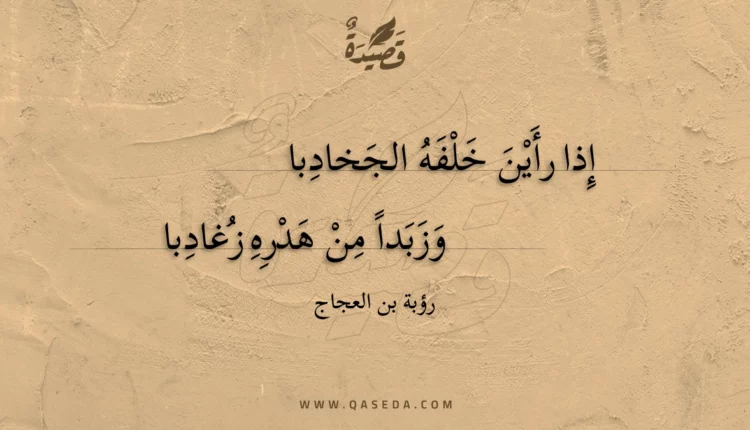 قَصِيدَةٌ
إِذا رأَيْنَ خَلْفَهُ الجَخادِبا
وَزَبَداً مِنْ هَدْرِهِ زُغادِبا
رؤبة بن العجاج
WWW.QASEDA.COM